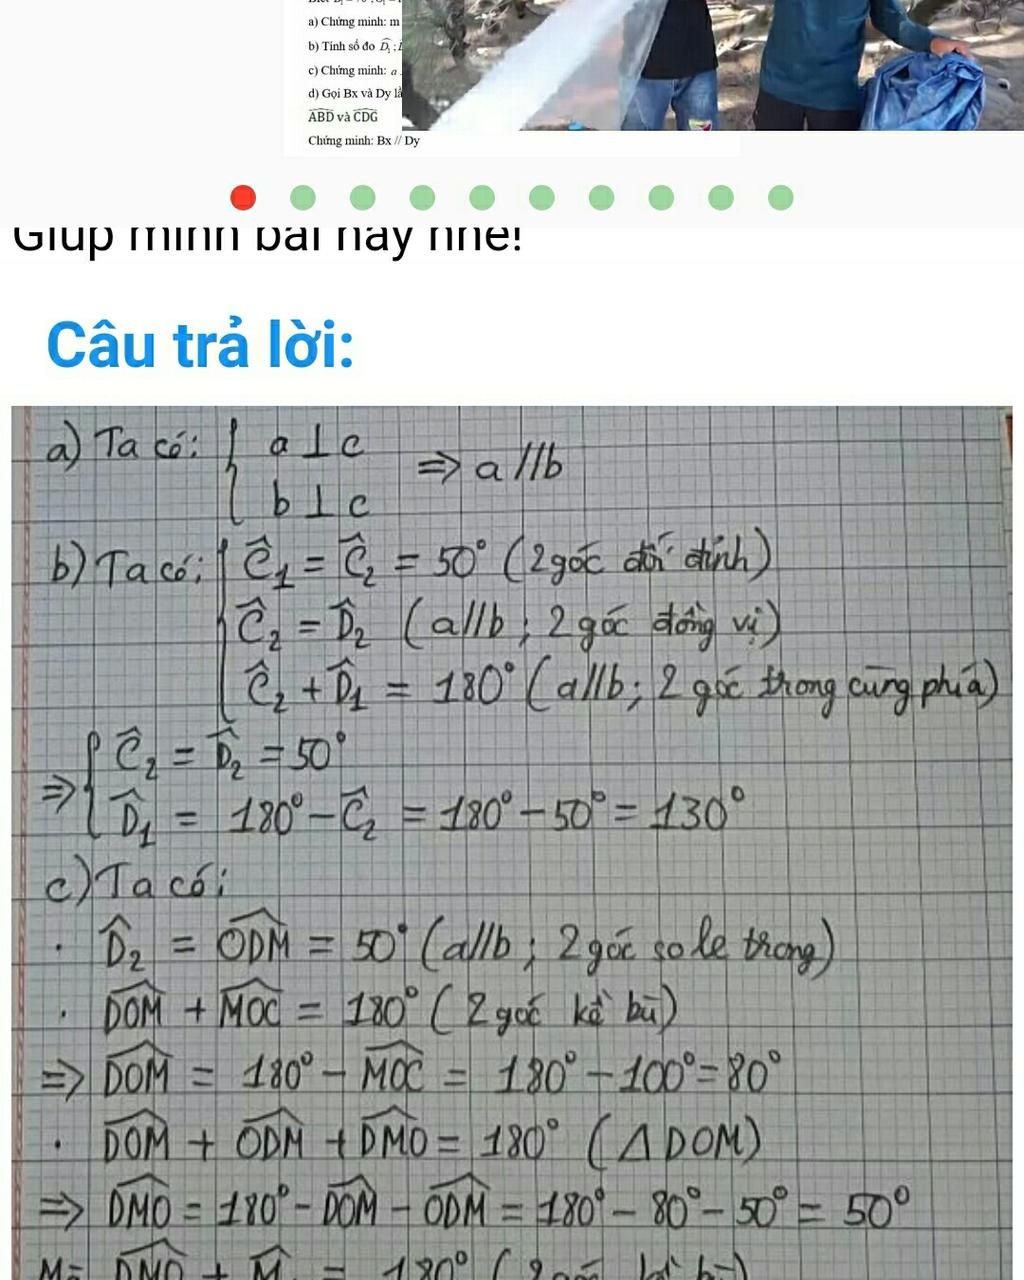 a) Chứng minh: m
b) Tính số đo D̂₁ ;
c) Chứng minh: a
d) Gọi Bx và Dy là
ABD và CDG
Chứng minh: Bx // Dy
Giúp mình bài này nhé!
Câu trả lời:
a) Ta có: { a ⊥ c
b ⊥ c
⇒ a // b
b) Ta có: { Ĉ₁ = Ĉ₂ = 50° (2 góc đối đỉnh)
Ĉ₂ = D̂₂ (a//b ; 2 góc đồng vị)
Ĉ₂ + D̂₁ = 180° (a//b ; 2 góc trong cùng phía)
⇒ { Ĉ₂ = D̂₂ = 50°
D̂₁ = 180° - Ĉ₂ = 180° - 50° = 130°
c) Ta có:
. D̂₂ = ODM = 50° (a//b ; 2 góc so le trong)
. DOM + MOC = 180° (2 góc kề bù)
⇒ DOM = 180° - MOC = 180° - 100° = 80°
. DOM + ODM + DMO = 180° (Δ DOM)
⇒ DMO = 180° - DOM - ODM = 180° - 80° - 50° = 50°